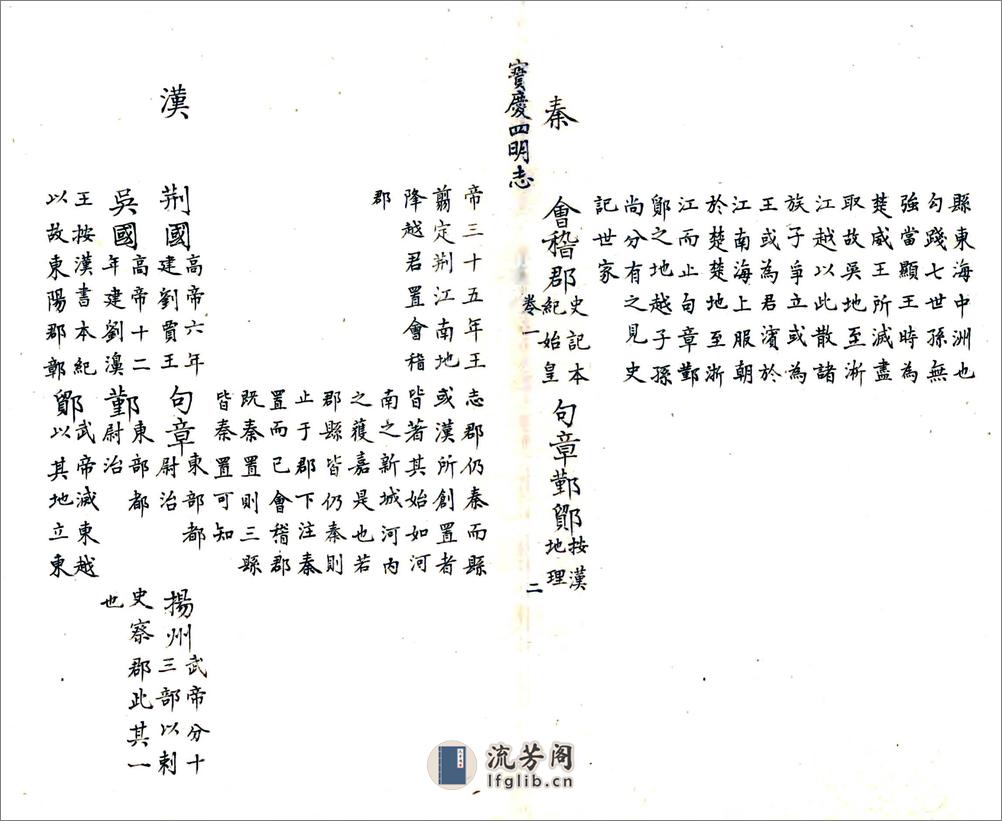 縣東海中洲也
勾踐七世孫無
強當顯王時為
楚威王所滅盡
取故吳地至淅
江越以此散諸
族子爭立或為
王或為君濱於
江南海上服朝
於楚楚地至浙
江而止句章鄞
鄮之地越子孫
尚分有之見史
記世家
秦
會稽郡
史記本
紀始皇
句章鄞鄮
按漢
地理
寶慶四明志
卷一
二
帝三十五年王
翦定荆江南地
降越君置會稽
郡
志郡仍秦而縣
或漢所創置者
皆著其始如河
南之新城河内
之獲嘉是也若
郡縣皆仍秦則
止于郡下注秦
置而已會稽郡
既秦置則三縣
皆秦置可知
漢
荆國
高帝六年
建劉賈王
吳國
高帝十二
年建劉濞
王按漢書本紀
以故東陽郡鄣
句章
東部都
尉治
鄞
東部都
尉治
鄮
武帝滅東越
以其地立東
揚州
武帝分十
三部以刺
史察郡此其一
也
流芳阁
lfglib.cn